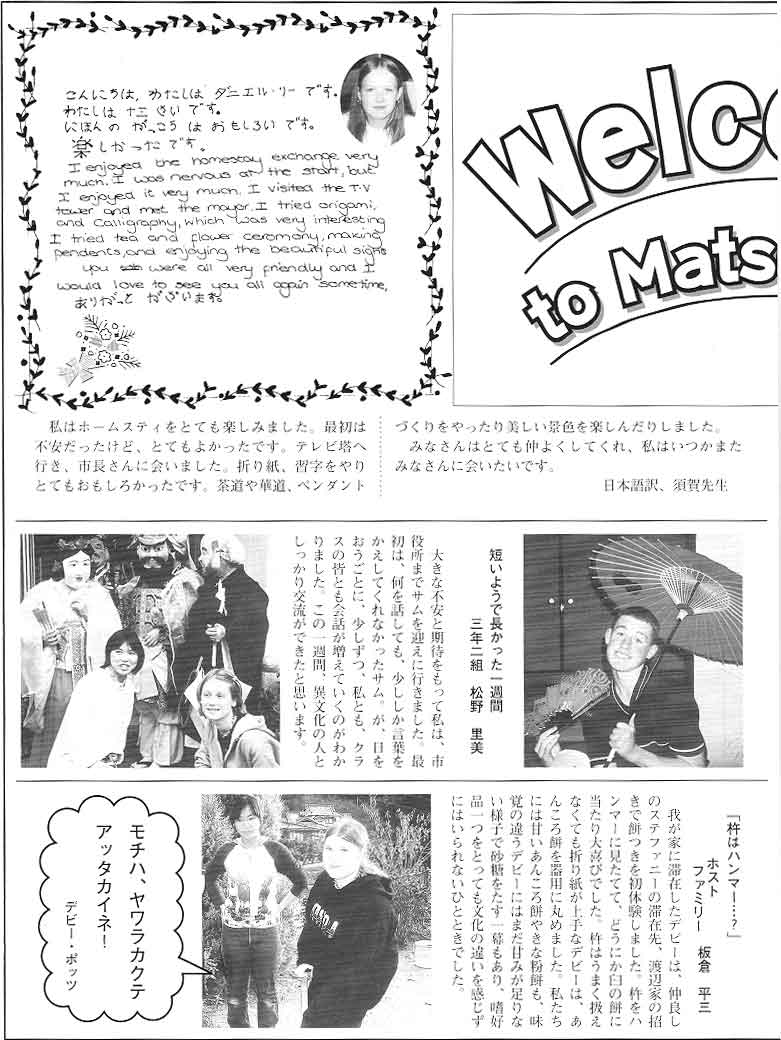 こんにちは，わたしは ダニエル・リー です。
わたしは 十三 さい です。
にほんの がっこう は おもしろい です。
楽しかった です。
I enjoyed the homestay exchange very
much. I was nervous at the start, but
I enjoyed it very much. I visited the T.V
tower and met the mayor. I tried origami,
and calligraphy, which was very interesting
I tried tea and flower ceromony, making
pendents, and enjoying the beautiful sights
you were all very friendly and I
would love to see you all again sometime,
ありがっと ございます。
Welco
to Mats
私はホームスティをとても楽しみました。最初は
不安だったけど、とてもよかったです。テレビ塔へ
行き、市長さんに会いました。折り紙、習字をやり
とてもおもしろかったです。茶道や華道、ペンダント
づくりをやったり美しい景色を楽しんだりしました。
みなさんはとても仲よくしてくれ、私はいつかまた
みなさんに会いたいです。
日本語訳、須賀先生
短いようで長かった一週間
三年二組 松野 里美
大きな不安と期待をもって私は、市
役所までサムを迎えに行きました。最
初は、何を話しても、少ししか言葉を
かえしてくれなかったサム。が、日を
おうごとに、少しずつ、私とも、クラ
スの皆とも会話が増えていくのがわか
りました。この一週間、異文化の人と
しっかり交流ができたと思います。
「杵はハンマー…?」
ホスト
ファミリー 板倉 平三
我が家に滞在したデビーは、仲良し
のステファニーの滞在先、渡辺家の招
きで餅つきを初体験しました。杵をハ
ンマーに見たてて、どうにか臼の餅に
当たり大喜びでした。杵はうまく扱え
なくても折り紙が上手なデビーは、あ
んころ餅を器用に丸めました。私たち
には甘いあんころ餅やきな粉餅も、味
覚の違うデビーにはまだ甘みが足りな
い様子で砂糖をたす一幕もあり、嗜好
品一つをとっても文化の違いを感じず
にはいられないひとときでした。
モチハ、ヤワラカクテ
アッタカイネ!
デビー・ポッツ